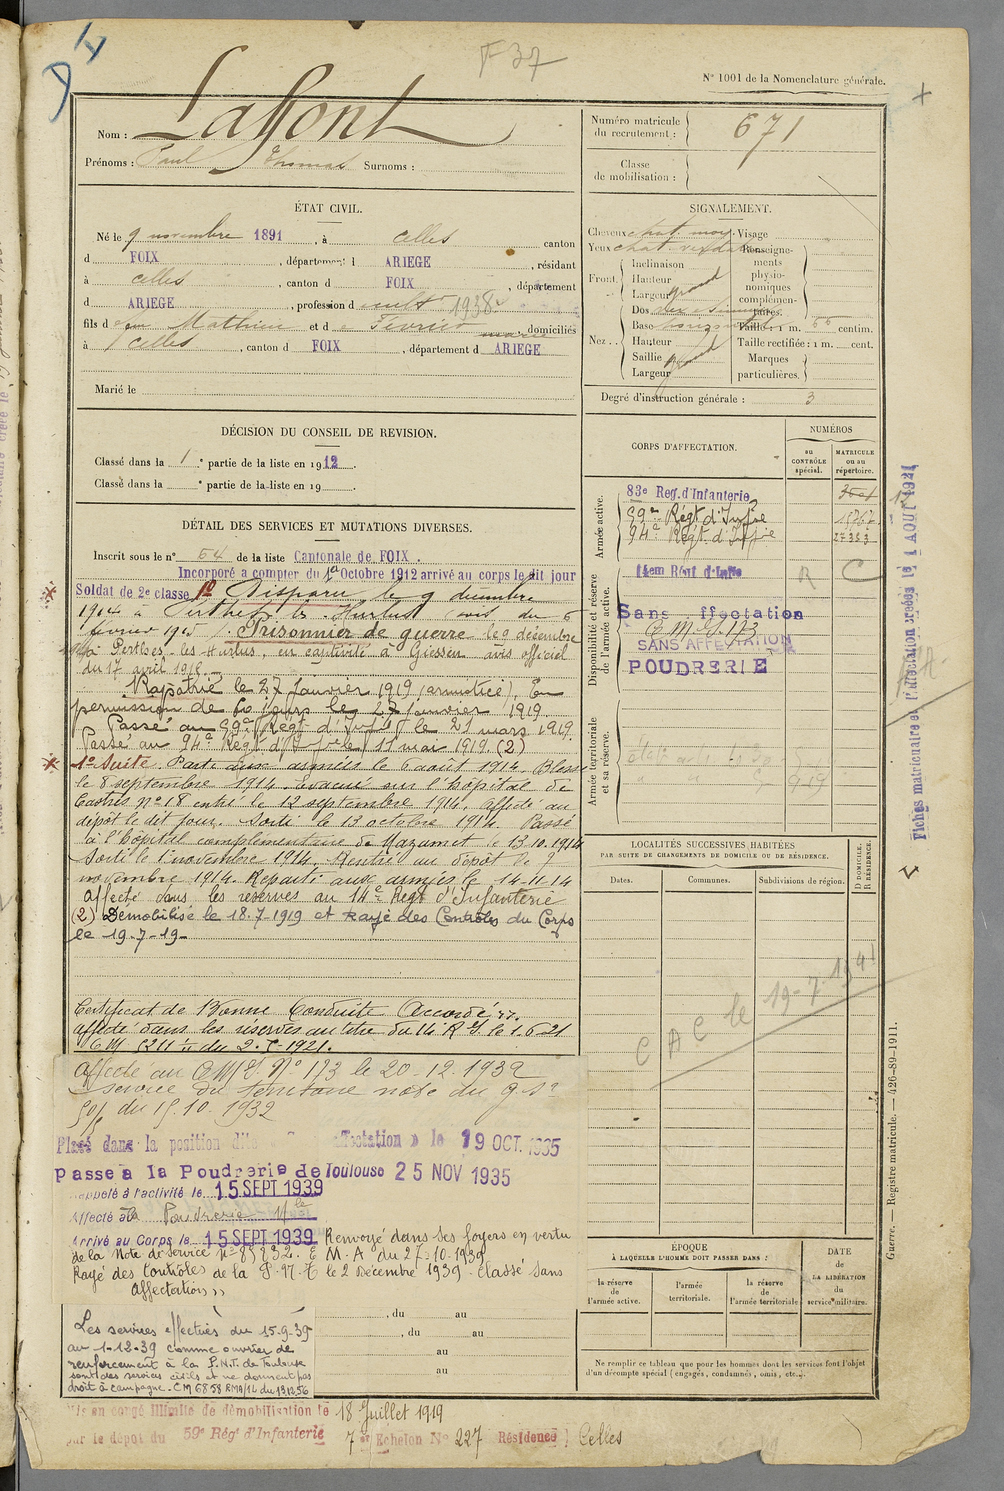 F 37
N° 1001 de la Nomenclature générale.
Nom : Laffont
Prénoms : Paul Thomas Surnoms :
Numéro matricule du recrutement : 671
Classe de mobilisation :
ÉTAT CIVIL.
Né le 9 novembre 1891, à Celles canton
d FOIX, département d ARIEGE, résidant
à Celles, canton d FOIX, département
d ARIEGE, profession d cult 1938
fils d feu Mathieu et d domiciliés
à Celles, canton d FOIX, département d ARIEGE
Marié le
SIGNALEMENT.
Cheveux chat. moy. Visage
Yeux chat.
Renseignements physionomiques complémentaires.
Front. Inclinaison
Hauteur
Largeur grand
Nez.. Dos
Base
Hauteur
Saillie grand
Largeur
Taille : 1 m. 66 centim.
Taille rectifiée : 1 m. cent.
Marques particulières.
Degré d'instruction générale : 3
DÉCISION DU CONSEIL DE REVISION.
Classé dans la 1e partie de la liste en 1912.
Classé dans la e partie de la liste en 19 .
DÉTAIL DES SERVICES ET MUTATIONS DIVERSES.
Inscrit sous le n° 54 de la liste Cantonale de FOIX.
Incorporé a compter du 1er Octobre 1912 arrivé au corps le dit jour
Soldat de 2e classe Disparu le 9 décembre
1914 à Perthes les Hurlus avis du 6
février 1915. Prisonnier de guerre le 9 décembre
à Perthes-les-Hurlus, en captivité à Giessen avis officiel
du 17 avril 1918.
Rapatrié le 27 Janvier 1919 (armistice). En
permission de 60 jours le 27 janvier 1919
Passé au 59e Régt d'Infie le 21 mars 1919.
Passé au 94e Régt d'Infie le 11 mai 1919. (2)
1e Suite. Parti aux armées le 6 août 1914. Blessé
le 8 septembre 1914. Evacué sur l'hôpital de
Castres n° 18 entré le 12 septembre 1914. Affecté au
dépôt le dit jour. Sorti le 13 octobre 1914. Passé
à l'hôpital complémentaire de Mazamet le 13.10.1914
Sorti le 1 novembre 1914. Rentré au dépôt le
novembre 1914. Reparti aux armées le 14-11-14
Affecté dans les réserves au 14e Régt d'Infanterie
(2) Démobilisé le 18-7-1919 et Rayé des Contrôles du Corps
le 19-7-19-
Certificat de Bonne Conduite Accordé
affecté dans les réserves au titre du 14 R I. le 1.6 21
CM 5211 du 2.5-1921.
Affecté au C M I. N° 173 le 20-12-1932
service du territoire note du
du 15.10.1932
Placé dans la position dite affectation » le 19 OCT. 1935
passé à la Poudrerie de Toulouse 25 NOV 1935
appelé à l'activité le 15 SEPT 1939
Affecté à la Poudrerie Nle
Arrivé au Corps le 15 SEPT 1939 Renvoyé dans ses foyers en vertu
de la Note de service n° 85232. E M.A du 27-10-1939
Rayé des Contrôles de la P.N.T le 2 Décembre 1939 - Classé sans
Affectation »
Les services effectués du 15-9-39
au 1-12-39 comme ouvrier de
renforcement à la P.N.T. de Toulouse
sont des services civils et ne donnent pas
droit à campagne. CM 6858 RMA/14 du 13.12.56
, du au
, du au
au
au
Mis en congé illimité de démobilisation le 18 Juillet 1919
par le dépôt du 59e Régt d'Infanterie
7e Echelon N° 227 Résidence } Celles
CORPS D'AFFECTATION.
NUMÉROS
au CONTRÔLE spécial.
MATRICULE ou au répertoire.
Armée active.
83e Reg. d'Infanterie
59e Régt d'Infie 15767
94e Régt. d'Infie 27353
Disponibilité et réserve de l'armée active.
14em Régt d'Inffie R C
Sans ffectation
C M I. 173
SANS AFFECTATION
POUDRERIE
Armée territoriale et sa réserve.
LOCALITÉS SUCCESSIVES HABITÉES
PAR SUITE DE CHANGEMENTS DE DOMICILE OU DE RÉSIDENCE.
Dates.
Communes.
Subdivisions de région.
D DOMICILE. R RÉSIDENCE.
C A C le 19-7-1941
ÉPOQUE
À LAQUELLE L'HOMME DOIT PASSER DANS :
la réserve de l'armée active.
l'armée territoriale.
la réserve de l'armée territoriale
DATE de LA LIBÉRATION du service militaire.
Ne remplir ce tableau que pour les hommes dont les services font l'objet
d'un décompte spécial (engagés, condamnés, omis, etc..
Fiches matriculaire et d'affectation créées le 1 AOUT 1921
Guerre. — Registre matricule. — 426-89-1911.